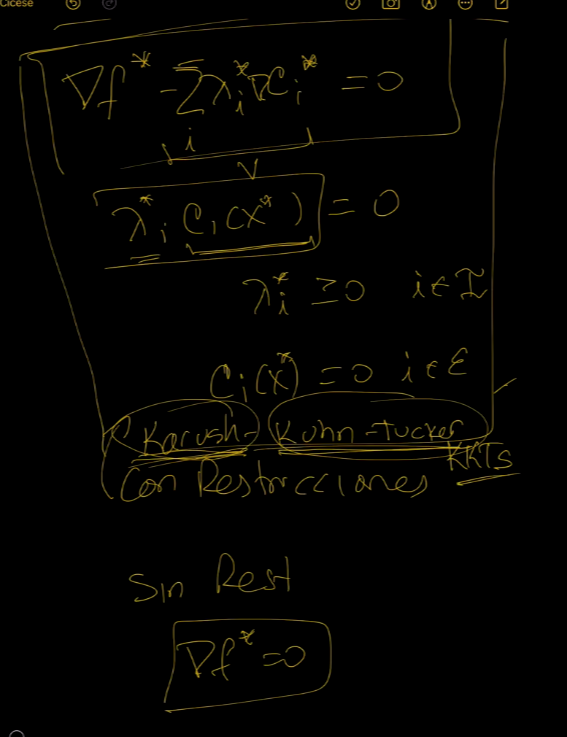 Cicese
∇f* - Σ λ*ᵢ ∇Cᵢ* = 0
i
λ*ᵢ Cᵢ(x*) = 0
λ*ᵢ ≥ 0 i ∈ I
Cᵢ(x*) = 0 i ∈ ℰ
Karush-Kuhn-Tucker
KKTs
Con Restricciones
Sin Rest
∇f* = 0